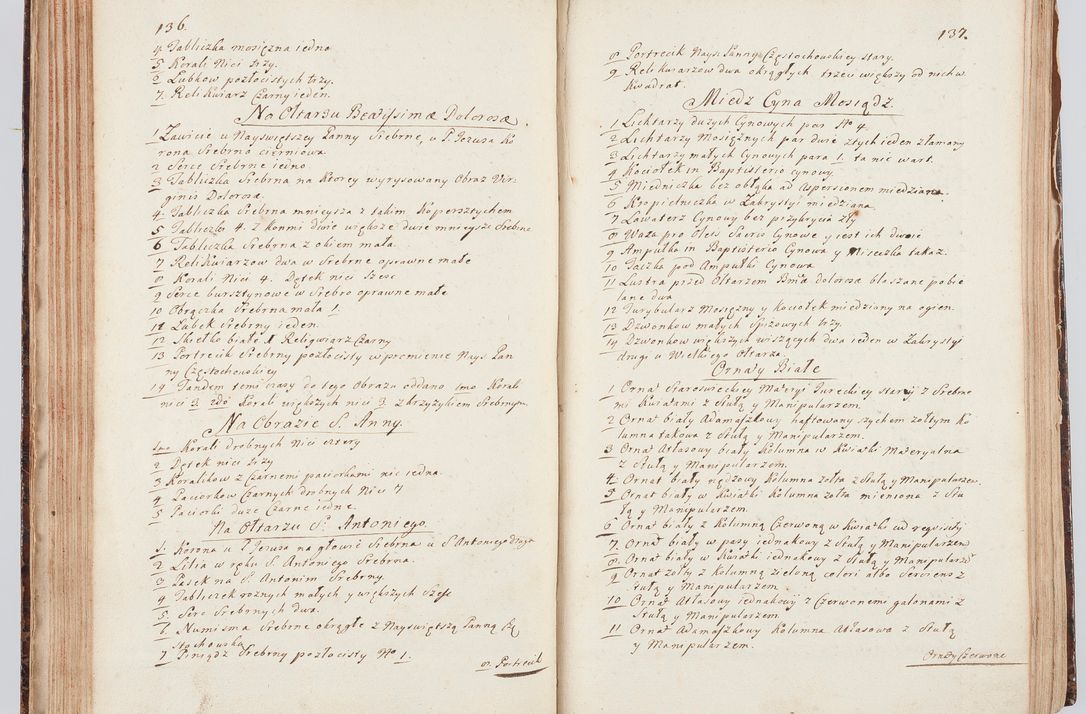 136.
4 Tabliczka mosiężna iedna
5 Korali Nici trzy.
6 Lubkow pozłocistych trzy.
7. Relikwiarz Czarny ieden.
Na Ołtarzu Beatissimæ Dolorosæ
1 Zawicie u Nayswiętszey Panny Srebrne, u P. Jezusa Ko
rona Srebrna cierniowa
2 Serce Srebrne iedno
3 Tabliczka Srebrna na ktorey wyrysowany Obraz Vir-
ginis Dolorosa.
4. Tabliczka Srebrna mnieysza z takim Kopersztychem
5 Tabliczki 4. z konmi dwie większe dwie mnieysze Srebrne
6 Tabliczka Srebrna z okiem mała.
7 Relikwiarzow dwa w Srebrne oprawne małe
8 Korali Nici 4. Dętek nici Szesc
9 Serce bursztynowe w Srebro oprawne małe
10 Obrączka Srebrna mała 1.
11 Łubek Srebrny ieden.
12 Skiełko białe 1 Religwiarz Czarny
13 Portrecik Srebrny pozłocisty w promienie Nays Pan
ny Częstochowskiey
14 Tandem temi czasy do tego Obrazu oddano 1mo Korali
nici 3 2do Korali większych nici 3 z krzyżykiem Srebrnym.
Na Obrazie S. Anny.
1mo Korali drobnych Nici cztery
2 Dętek nici trzy
3 Koralikow z Czarnemi paciorkami nic iedna
4 Paciorkow Czarnych drobnych Nici 7
5 Paciorki duże Czarne iedne.
Na Ołtarzu S. Antoniego.
1. Korona u P Jezusa na głowie Srebrna u S. Antoniego druga
2 Lilia w ręku S. Antoniego Srebrna.
3 Pasek na S. Antonim Srebrny.
4 Tabliczek rożnych małych y większych Szesc
5 Serc Srebrnych dwa.
6 Numisma Srebrne okrągłe z Nayswiętszą Panną Czę
stochowską
7 Pieniądz Srebrny pozłocisty No 1.
8. Portrecik
137.
8 Portrecik Nays: Panny Częstochowskiey stary.
9 Relikwiarzow dwa okrągłych trzeci większy od nich w
Kwadrat.
Miedz Cyna Mosiądz.
1 Lichtarzy dużych Cynowych par No 4.
2 Lichtarzy Mosiężnych par dwie z tych ieden złamany
3 Lichtarzy małych Cynowych para 1. ta nic wart.
4 Kociołek in Baptisterio cynowy.
5 Miedniczka bez obłąka ad Aspersionem miedziana.
6 Kropielniczka w Zakrystyi miedziana.
7 Lawaterz Cynowy bez przykrycia zły
8 Waza pro Oleis Sacris Cynowe y iest ich dwoie
9 Ampułka in Baptisterio Cynowa y Miseczka takaz.
10 Taczka pod Ampułki Cynowa
11 Lustra przed Ołtarzem Bmæ dolorosæ blaszane pobie
lane dwa
12 Turybularz Mosiężny y kociołek miedziany na ogien.
13 Dzwonkow małych Spiżowych trzy.
14 Dzwonkow większych wiszących dwa ieden w Zakrystyi
drugi u Wielkiego Ołtarza.
Ornaty Białe
1 Ornat Staroswieckiey Materyi Tureckiey stary z Srebrne
mi Kwiatami z Stułą y Manipularzem.
2 Ornat biały Adamaszkowy haftowany sychem zołtym Ko
lumna takowa z Stułą y Manipularzem.
3 Ornat Atłasowy biały Kolumna w Kwiatki Materyalna
z Stułą y Manipularzem.
4 Ornat biały rządzowy Kolumna zołta z Stułą y Manipularzem.
5 Ornat biały w Kwiatki Kolumna zołta mieniona z Stu
łą y Manipularzem.
6 Ornat biały z Kolumną Czerwoną w Kwiatki cud reqvisitis
7. Ornat biały w pasy iednakowy z Stułą y Manipularzem
8. Ornat biały w Kwiatki iednakowy z Stułą y Manipularzem
9 Ornat zołty z Kolumną zieloną colori albo Serviens z
Stułą y Manipularzem
10 Ornat Atłasowy iednakowy z Czerwonemi galonami z
Stułą y Manipularzem.
11 Ornat Adamaszkowy Kolumna Atłasowa z Stułą
y Manipularzem.
Ornaty Czerwone